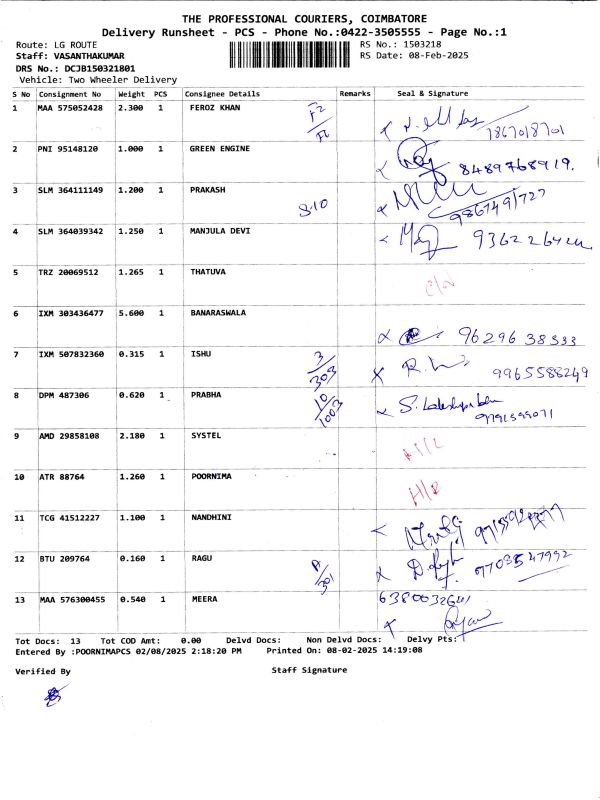 THE PROFESSIONAL COURIERS, COIMBATORE
Delivery Runsheet - PCS - Phone No.:0422-3505555 - Page No.:1
Route: LG ROUTE RS No.: 1503218
Staff: VASANTHAKUMAR RS Date: 08-Feb-2025
DRS No.: DCJB150321801
Vehicle: Two Wheeler Delivery
S No Consignment No Weight PCS Consignee Details Remarks Seal & Signature
1 MAA 575052428 2.300 1 FEROZ KHAN
7867018701
2 PNI 95148120 1.000 1 GREEN ENGINE
8489768919.
3 SLM 364111149 1.200 1 PRAKASH
8-10 9867491727
4 SLM 364039342 1.250 1 MANJULA DEVI
5 TRZ 20069512 1.265 1 THATUVA
6 IXM 303436477 5.600 1 BANARASWALA
96296 38333
7 IXM 507832360 0.315 1 ISHU
3/303 9965588249
8 DPM 487306 0.620 1 PRABHA
10/1003 9791599071
9 AMD 29858108 2.180 1 SYSTEL
10 ATR 88764 1.260 1 POORNIMA
11 TCG 41512227 1.100 1 NANDHINI
12 BTU 209764 0.160 1 RAGU
9703547992
13 MAA 576300455 0.540 1 MEERA
Tot Docs: 13 Tot COD Amt: 0.00 Delvd Docs: Non Delvd Docs: Delvy Pts:
Entered By :POORNIMAPCS 02/08/2025 2:18:20 PM Printed On: 08-02-2025 14:19:08
Verified By Staff Signature